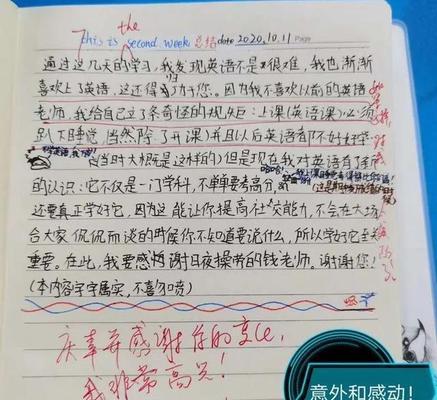 the
This is second week 总结 date 2020.10.11 Page
通过这几天的学习,我发现英语不是很难,我也渐渐
喜欢上了英语,这还得归功于您。因为我不喜欢以前的英语
老师,我给自己立了条奇怪的规矩:上课(英语课)必须
趴下睡觉,当然除了开课)并且以后英语都不好好学
(当时大概是这样的)但是现在我对英语有了
的认识:它不仅是一门学科,不单单要考高分,
还要真正学好它,因为这能让你提高社交能力,不会在大场
台大家侃侃而谈的时候你不知道要说什么,所以学好它至关
重要。在此,我要感谢日夜操劳的钱老师。谢谢您!
(本内容字字属实,不喜勿喷)
庆幸并感谢你的变化,
我非常高兴!
意外和感动!